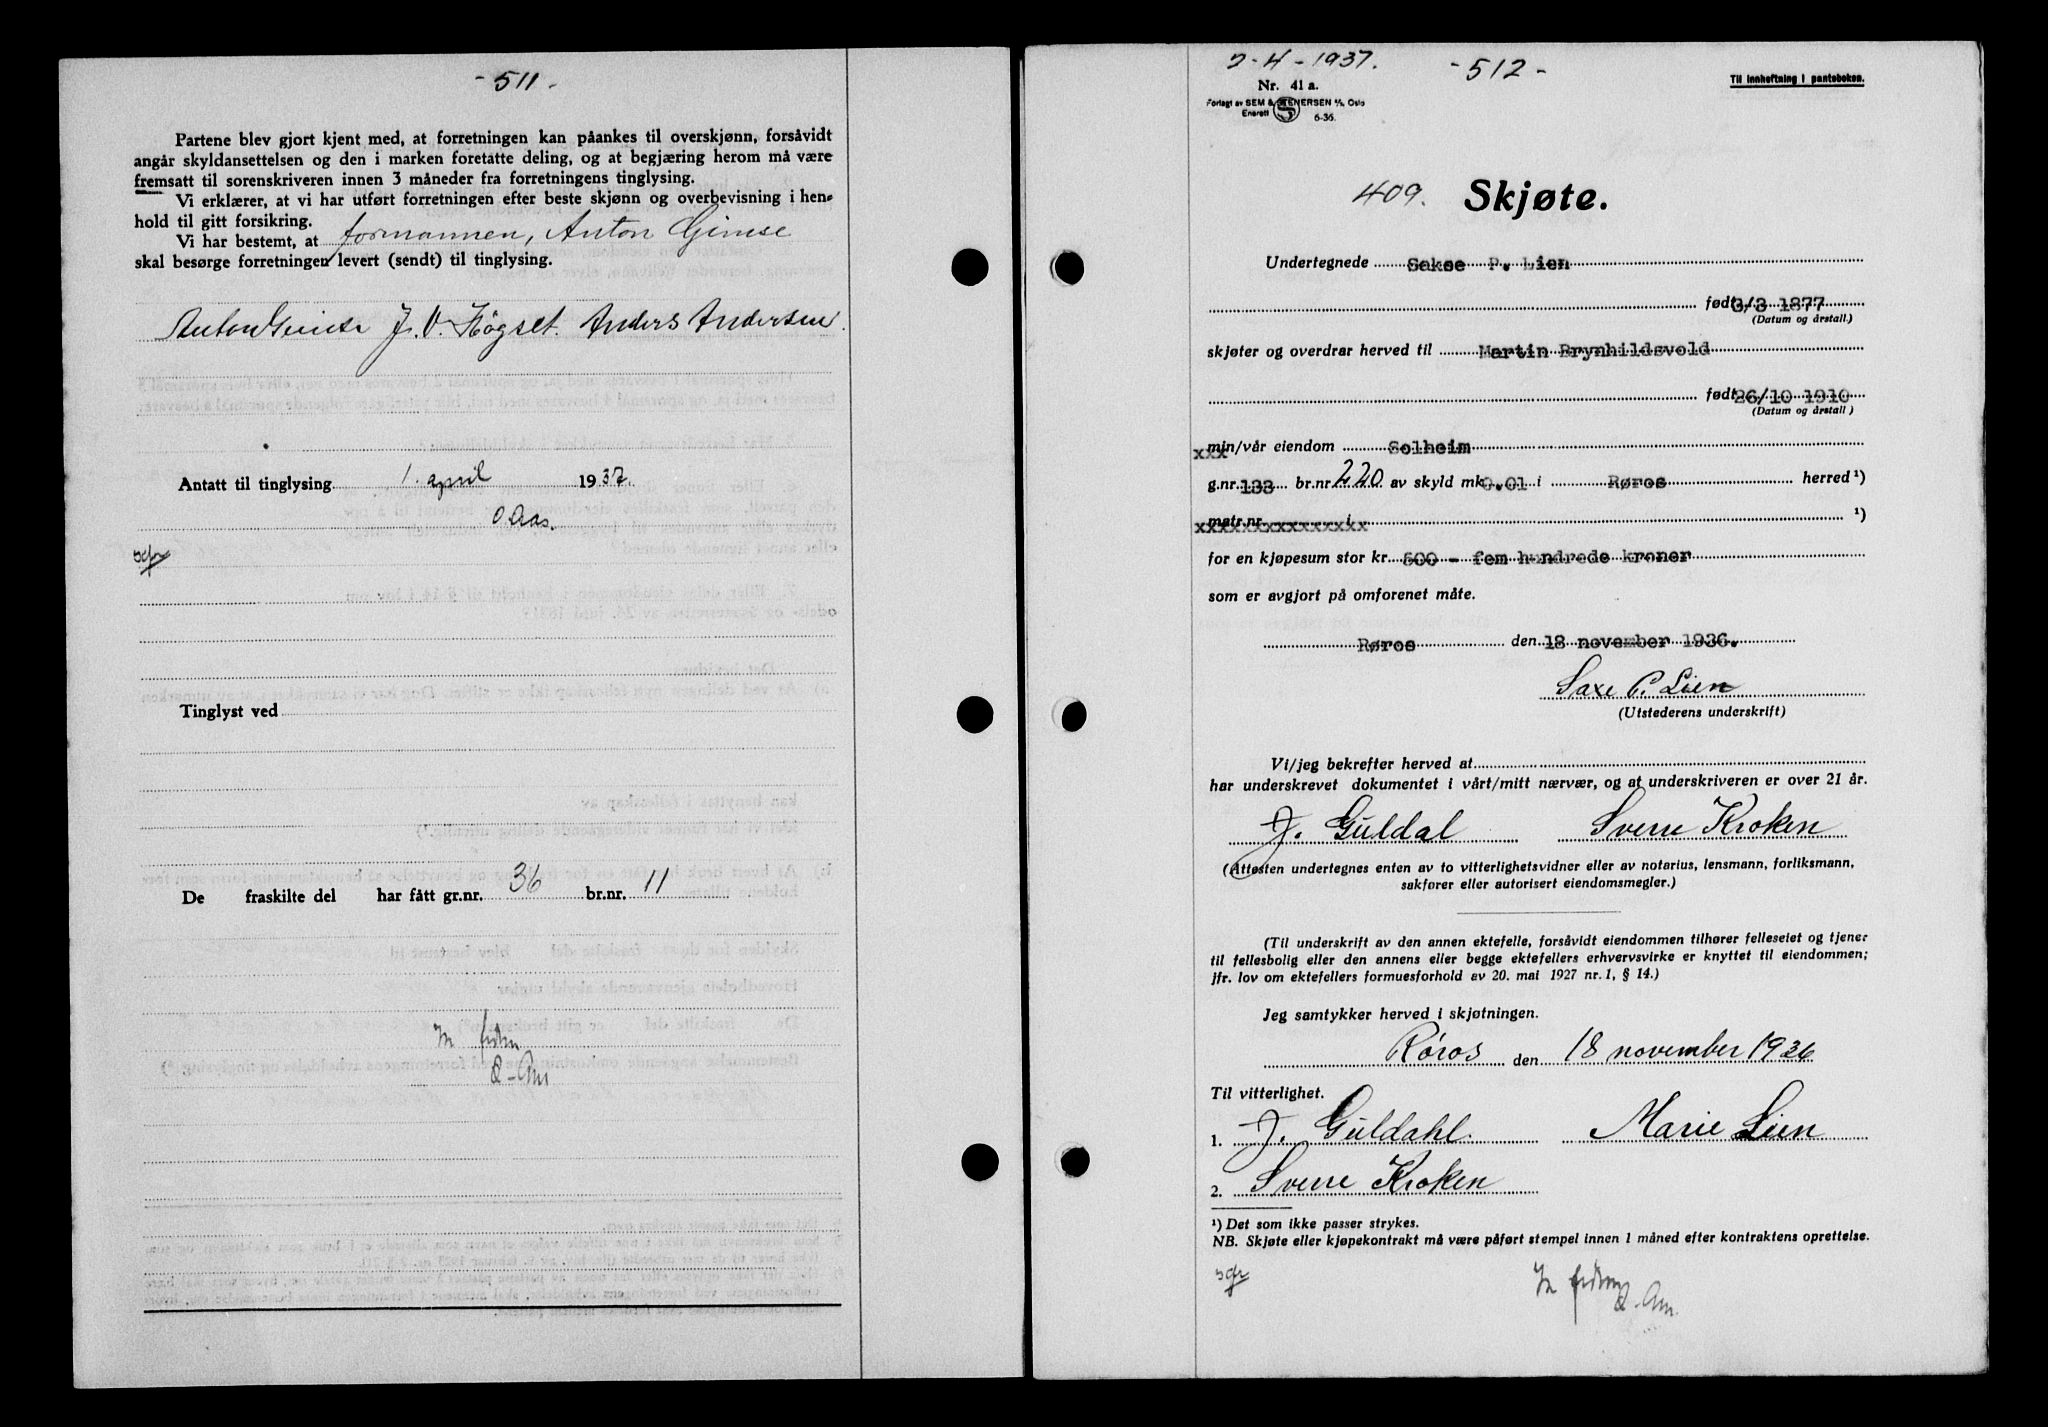 - 511 -
Partene blev gjort kjent med, at forretningen kan påankes til overskjønn, forsåvidt
angår skyldansettelsen og den i marken foretatte deling, og at begjæring herom må være
fremsatt til sorenskriveren innen 3 måneder fra forretningens tinglysing.
Vi erklærer, at vi har utført forretningen efter beste skjønn og overbevisning i hen-
hold til gitt forsikring.
Vi har bestemt, at formannen, Anton Gimse
skal besørge forretningen levert (sendt) til tinglysing.
Anton Gimse J. O. Høgset. Anders Andersen.
Antatt til tinglysing 1. april 1937.
O Aas.
Tinglyst ved
De fraskilte del har fått gr.nr. 36 br.nr. 11
2-4-1937.
- 512 -
Til innheftning i panteboken.
Nr. 41 a.
Forlagt av SEM & STENERSEN A/S, Oslo
Enerett S 6-36.
409. Skjøte.
Undertegnede Sakse P. Lien
født 3/3 1877
(Datum og årstall.)
skjøter og overdrar herved til Martin Brynhildsvold
født 26/10 1910
(Datum og årstall)
xxx min/vår eiendom Solheim
g.nr. 133 br.nr. 220 av skyld mk 0.01 i Røros herred ¹)
matr.nr. i ¹)
for en kjøpesum stor kr. 500 - fem hundrede kroner
som er avgjort på omforenet måte.
Røros den 18 november 1936.
Saxe P. Lien
(Utstederens underskrift)
Vi/jeg bekrefter herved at
har underskrevet dokumentet i vårt/mitt nærvær, og at underskriveren er over 21 år.
J. Guldal Sverre Kroken
(Attesten undertegnes enten av to vitterlighetsvidner eller av notarius, lensmann, forliksmann,
sakfører eller autorisert eiendomsmegler.)
(Til underskrift av den annen ektefelle, forsåvidt eiendommen tilhører felleseiet og tjener
til fellesbolig eller den annens eller begge ektefellers erhvervsvirke er knyttet til eiendommen;
jfr. lov om ektefellers formuesforhold av 20. mai 1927 nr. 1, § 14.)
Jeg samtykker herved i skjøtningen.
Røros den 18 november 1936
Til vitterlighet.
1. J. Guldahl. Marie Lien
2. Sverre Kroken
¹) Det som ikke passer strykes.
NB. Skjøte eller kjøpekontrakt må være påført stempel innen 1 måned efter kontraktens oprettelse.